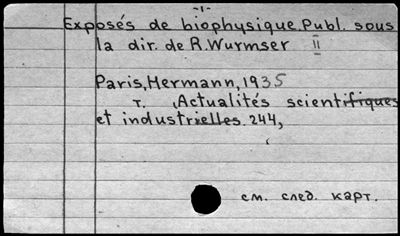 -1-
Exposés de biophysique. Publ. sous
la dir. de R. Wurmser II
Paris, Hermann, 1935
т. , Actualités scientifiques
et industrielles. 244,
см. след. карт.